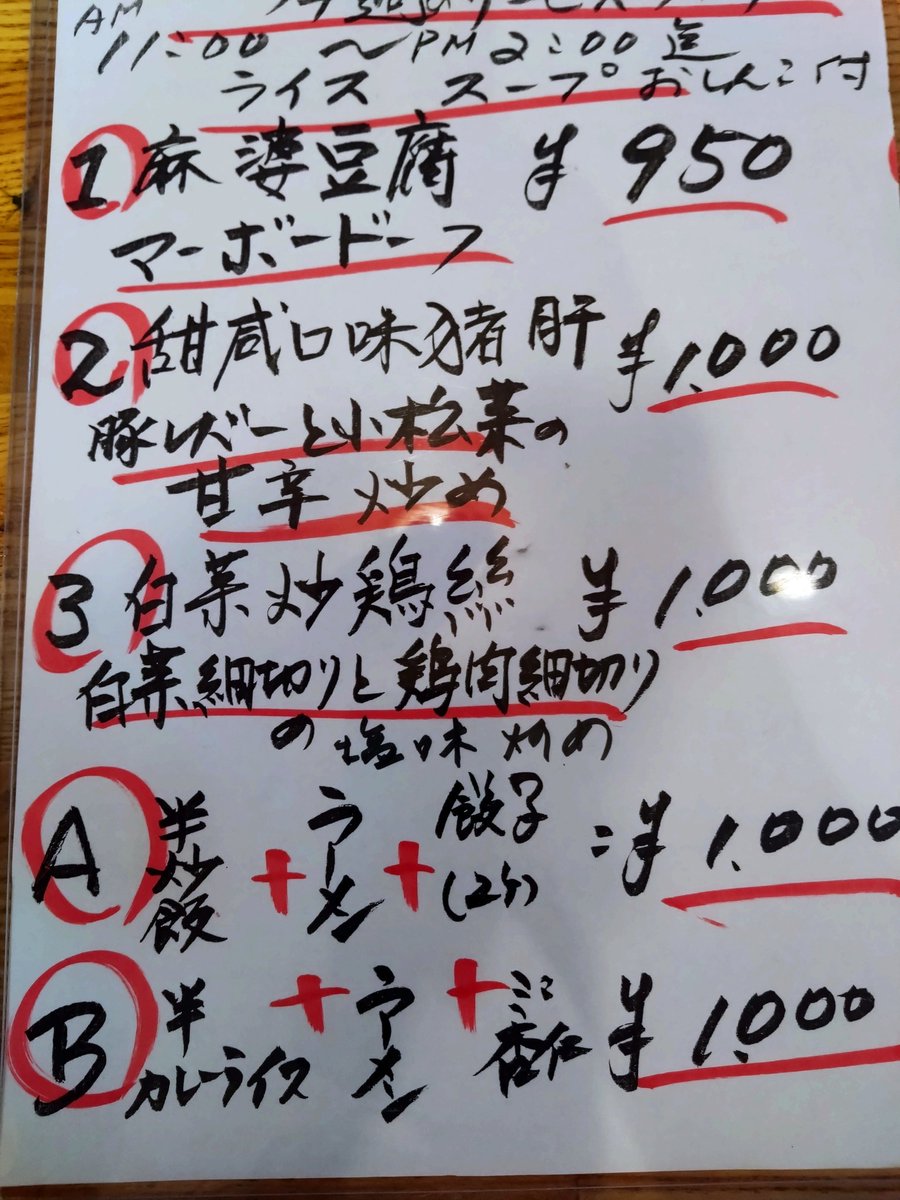 今週のサービスランチ
AM 11:00 〜 PM 2:00 迄
ライス スープ おしんこ付
1 麻婆豆腐 ¥950
マーボードーフ
2 甜咸口味猪肝 ¥1.000
豚レバーと小松菜の
甘辛炒め
3 白菜炒鶏絲 ¥1.000
白菜細切りと鶏肉細切り
の塩味炒め
A 半炒飯 + ラーメン + 餃子(2ヶ) : ¥1.000
B 半カレーライス + ラーメン + ミニ杏仁 ¥1.000